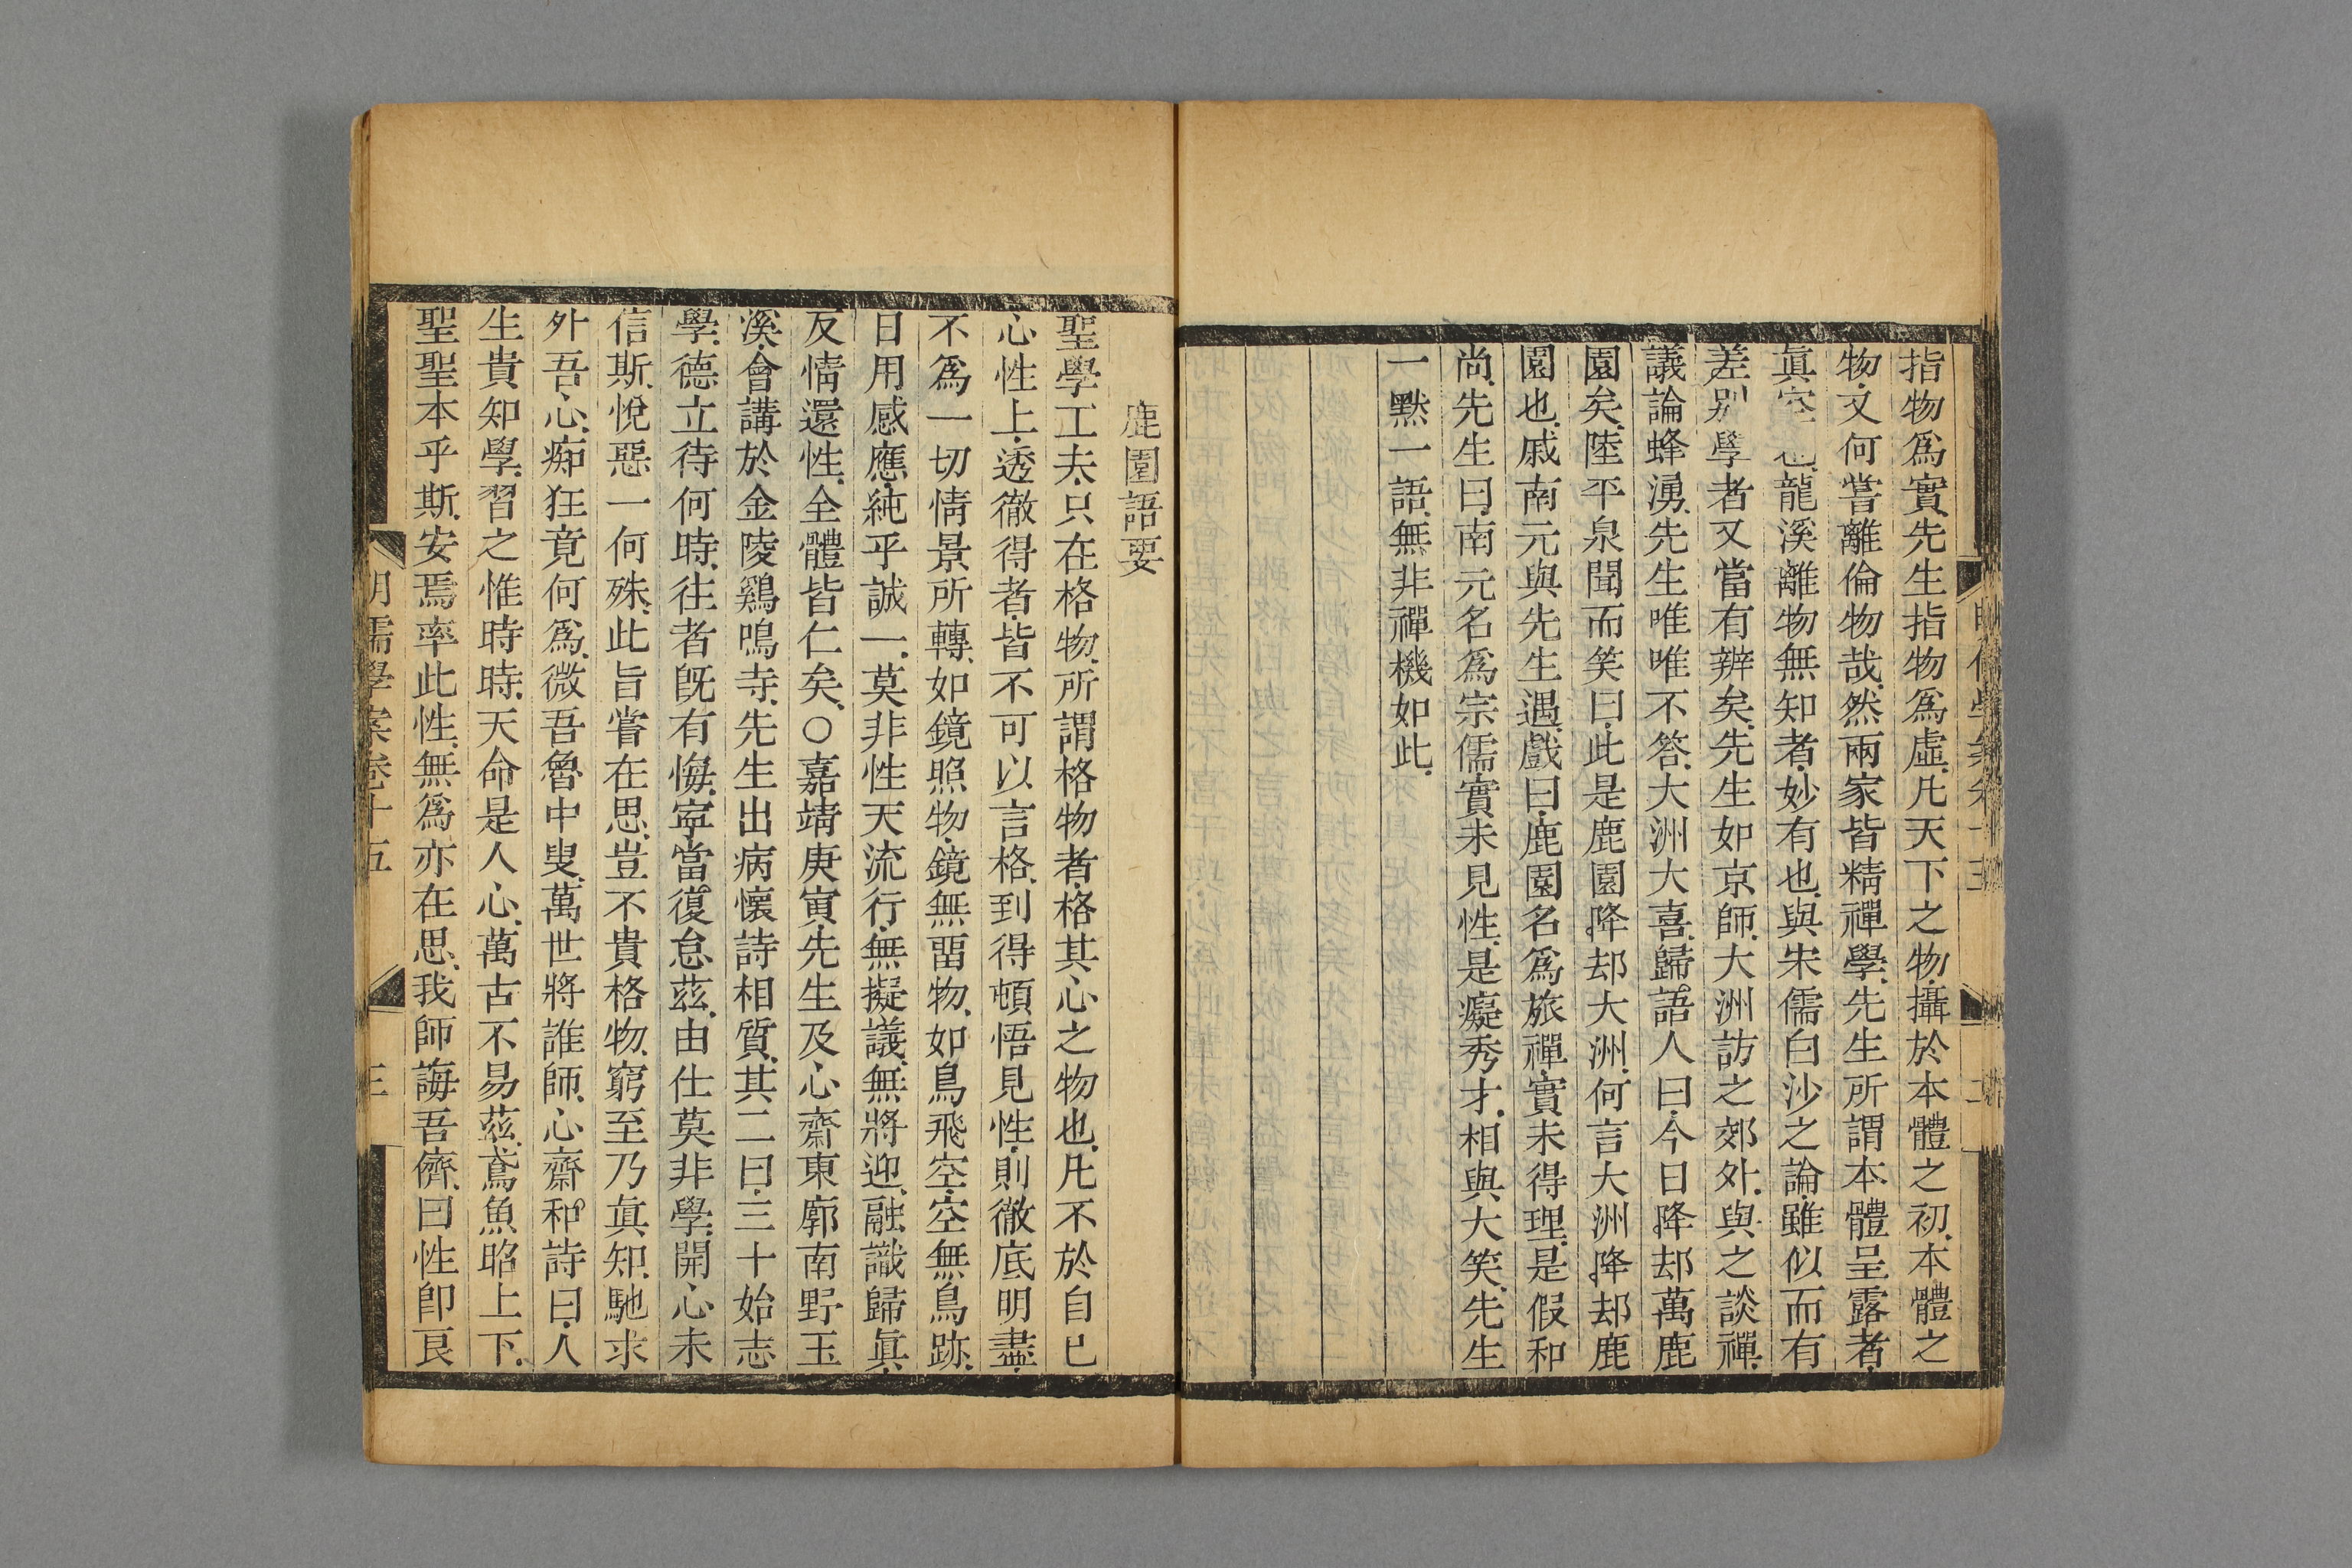 指物爲實先生指物爲虛凡天下之物攝於本體之初本體之
物又何嘗離倫物哉然兩家皆精禪學先生所謂本體呈露者
眞空也龍溪離物無知者妙有也與宋儒白沙之論雖似而有
差別學者又當有辨矣先生如京師大洲訪之郊外與之談禪
議論蜂湧先生唯唯不答大洲大喜歸語人曰今日降却萬鹿
園矣陸平泉聞而笑曰此是鹿園降却大洲何言大洲降却鹿
園也戚南元與先生遇戲曰鹿園名爲旅禪實未得理是假和
尚先生曰南元名爲宗儒實未見性是癡秀才相與大笑先生
一默一語無非禪機如此
鹿園語要
聖學工夫只在格物所謂格物者格其心之物也凡不於自已
心性上透徹得者皆不可以言格到得頓悟見性則徹底明盡
不爲一切情景所轉如鏡照物鏡無畱物如鳥飛空空無鳥跡
日用感應純乎誠一莫非性天流行無擬議無將迎融識歸眞
反情還性全體皆仁矣○嘉靖庚寅先生及心齋東廓南野玉
溪會講於金陵鷄鳴寺先生出病懷詩相質其二曰三十始志
學德立待何時往者旣有悔寧當復怠茲由仕莫非學開心未
信斯悅惡一何殊此旨嘗在思豈不貴格物窮至乃眞知馳求
外吾心痴狂竟何爲微吾魯中叟萬世將誰師心齋和詩曰人
生貴知學習之惟時時天命是人心萬古不易茲鳶魚昭上下
聖聖本乎斯安焉率此性無爲亦在思我師誨吾儕曰性卽良
明儒學案卷十五
三